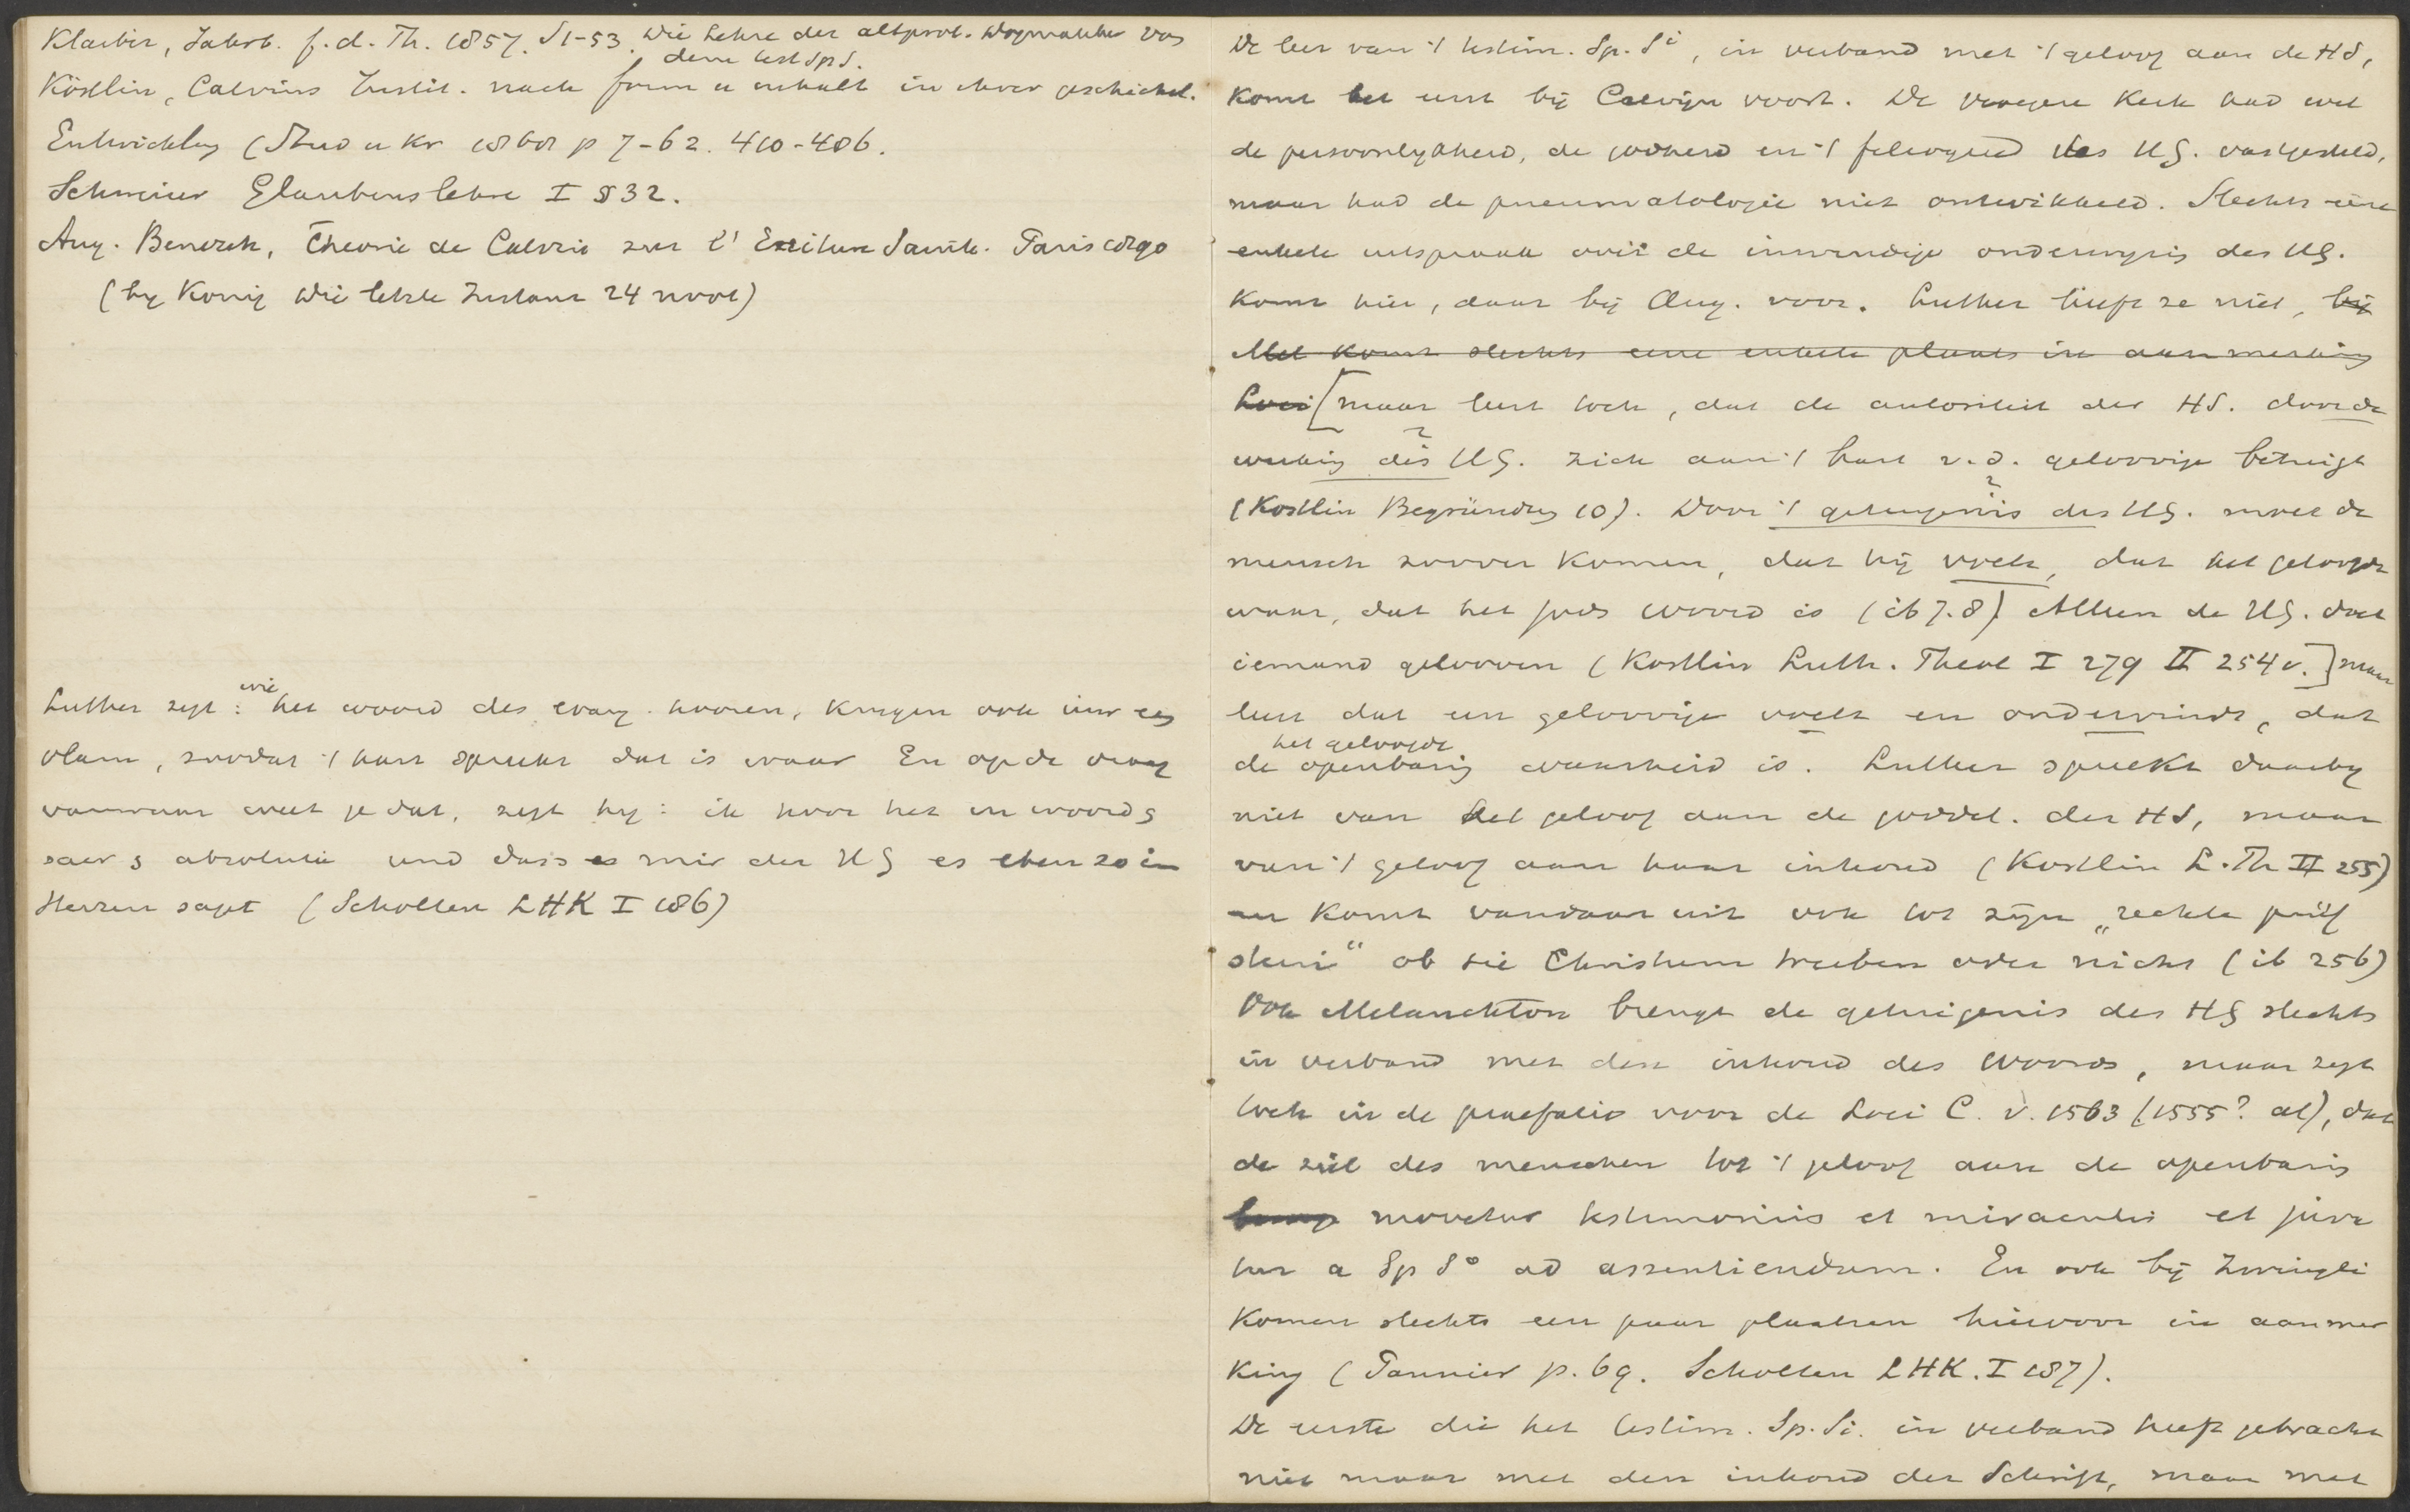 Klaiber, Jahrb. f. d. Th. 1857. S 1-53. Die Lehre der altprot. Dogmatiker von
dem test Sp S.
Köstlin, Calvins Instit. nach form u inhalt in ihrer geschichtl.
Entwicklung (Stud u Kr 1868 p 7-62. 410-486.
Schweizer Glaubenslehre I § 32.
Aug. Benezech, Théorie de Calvin sur l'Ecriture Sainte. Paris 1890
(by König Die letzte Instanz 24 noot)
Luther zegt: wie het woord des evang. hooren, krygen ook iets
vlam, zoodat 't hart spreekt dat is waar En op de vraag
vanwaar weet je dat, zegt hy: ik hoor het in woord &
sacr & absolutie und dass es mir der HG es eben so im
Herzen sagt (Scholten LHK I 186)
De leer van 't testim. Sp. Si, in verband met 't geloof aan de HS,
komt het eerst bij Calvijn voort. De vroegere Kerk had wel
de persoonlykheid, de godheid en 't filioque des HG. vastgesteld,
maar had de pneumatologie niet ontwikkeld. Slechts eene
enkele uitspraak over de inwendige onderwijzing des HG.
komt hier, daar bij Aug. voor. Luther heeft ze niet, bij
Mel komt slechts eene enkele plaats in aanmerking
Loci [maar leert toch, dat de autoriteit der HS. door de
werking des HG. zich aan 't hart v. d. geloovige betuigt
(Köstlin Begründung 10). Door 't getuigenis des HG. moet de
mensch zoover komen, dat hij voelt, dat het geloofde
waar, dat het gods woord is (ib 7.8) Alleen de HG. doet
iemand gelooven (Köstlin Luth. Theol I 279 II 254 v.] maar
leert dat een geloovige voelt en ondervindt, dat
het geloofde
de openbaring waarheid is. Luther spreekt daarby
niet van het geloof aan de goddel. der HS, maar
van 't geloof aan haar inhoud (Köstlin L. Th II 255)
en komt vandaar uit ook tot zijn „rechte prüf
stein“ ob sie Christum treiben oder nicht (ib 256)
Ook Melanchton brengt de getuigenis des HG slechts
in verband met den inhoud des Woords, maar zegt
toch in de praefatio voor de Loci C. v. 1563 (1555? al), dat
de ziel des menschen tot 't geloof aan de openbaring
movetur testimoniis et miraculis et juva
tur a Sp So ad assentiendum. En ook bij Zwingli
komen slechts een paar plaatsen hiervoor in aanmer
king (Pannier p. 69. Scholten LHK. I 187).
De eerste die het testim. Sp. Si. in verband heeft gebracht
niet maar met den inhoud der Schrift, maar met